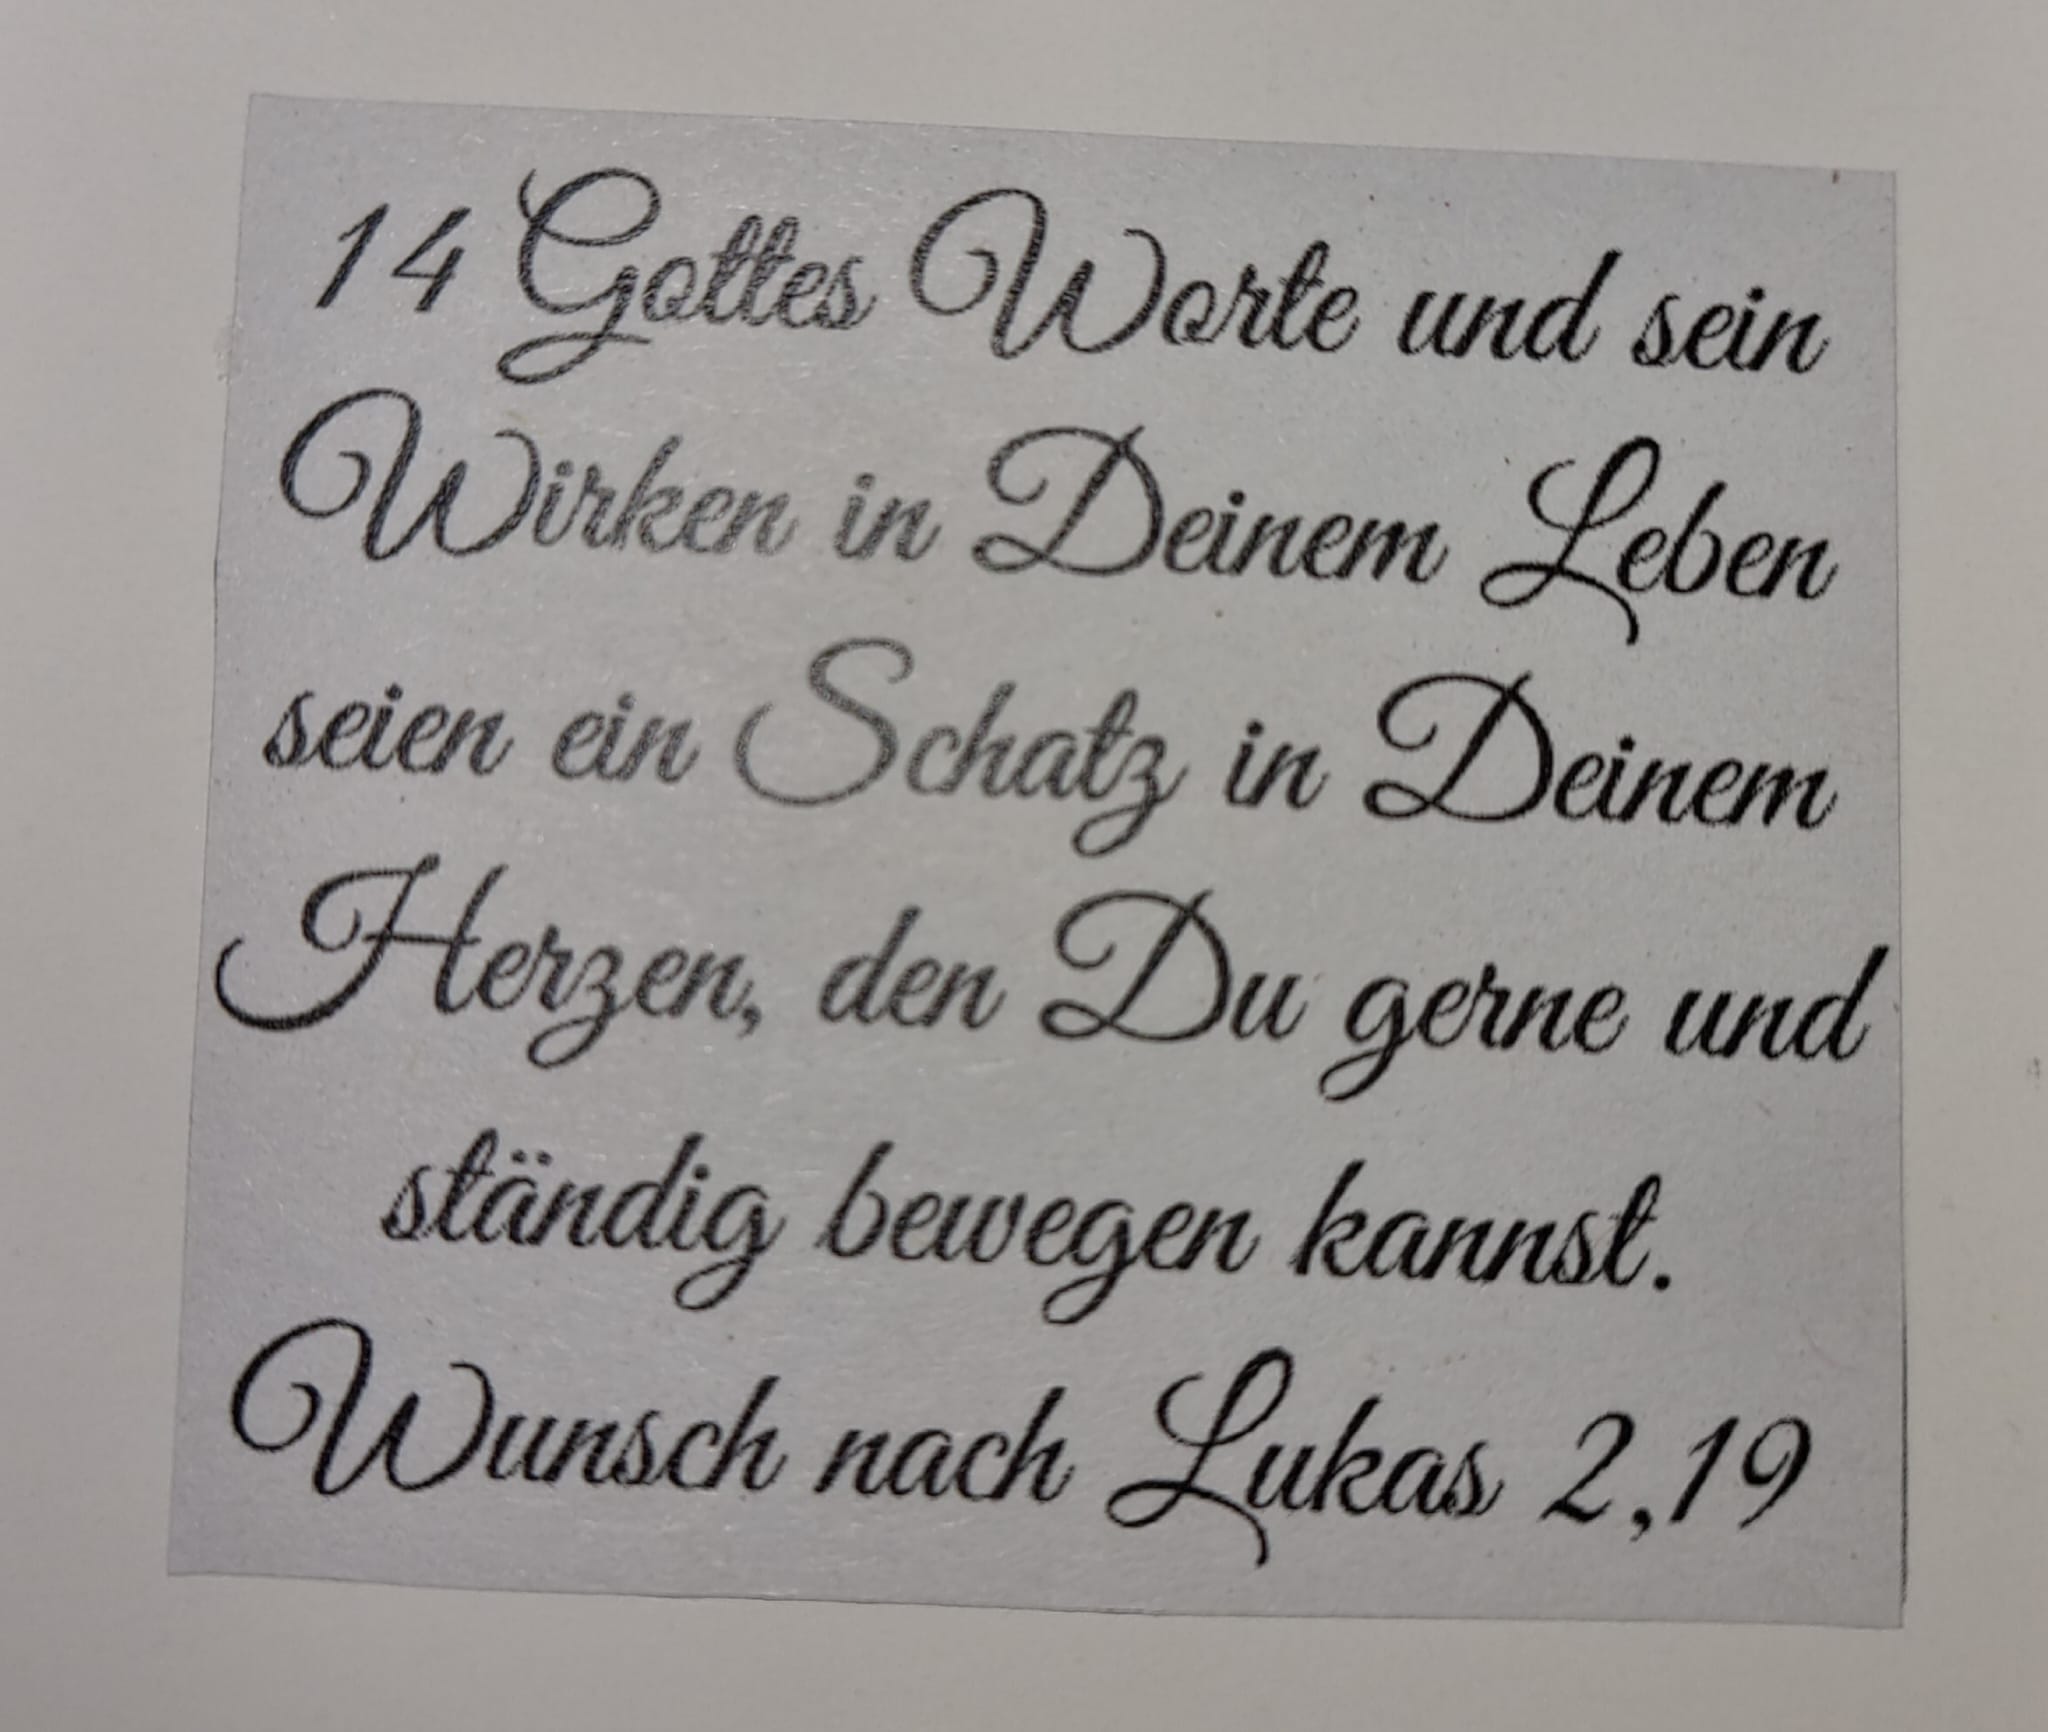 14 Gottes Worte und sein
Wirken in Deinem Leben
seien ein Schatz in Deinem
Herzen, den Du gerne und
ständig bewegen kannst.
Wunsch nach Lukas 2,19